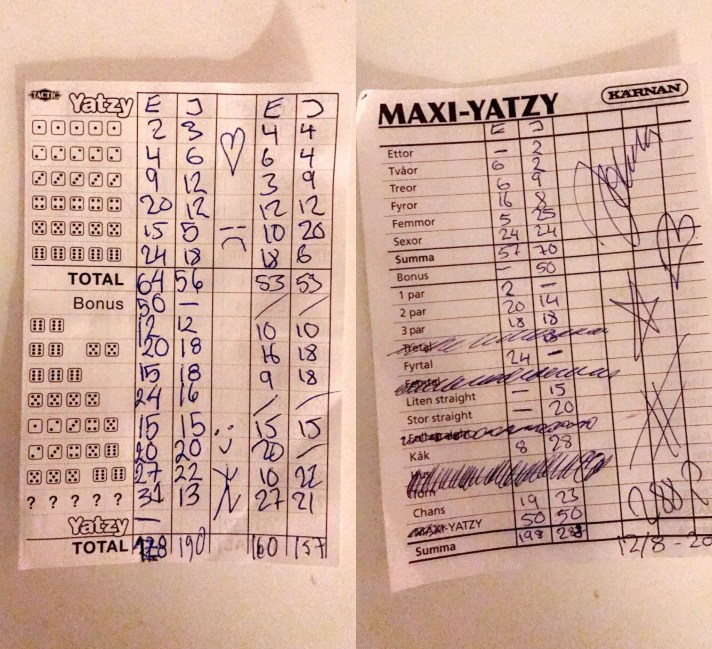 TACTIC Yatzy E J E J
2 3 4 4
4 6 6 4
9 12 3 9
20 12 12 12
15 5 10 20
24 18 18 6
TOTAL 64 56 53 53
Bonus 50 —
12 12 10 10
20 18 16 18
15 18 9 18
24 16
15 15 15 15
20 20 20
27 22 10 22
? ? ? ? ? 31 13 27 21
Yatzy —
TOTAL 190 160 157
MAXI-YATZY KÄRNAN
E J
Ettor — 2
Tvåor 6 2
Treor 6 9
Fyror 16 8
Femmor 5 25
Sexor 24 24
Summa 57 70
Bonus — 50
1 par 2 —
2 par 20 14
3 par 18 18
Tretal
Fyrtal 24 —
Liten straight — 15
Stor straight — 20
Kåk 8 28
Chans 19 23
MAXI-YATZY 50 50
Summa 198
288?
12/8 - 20